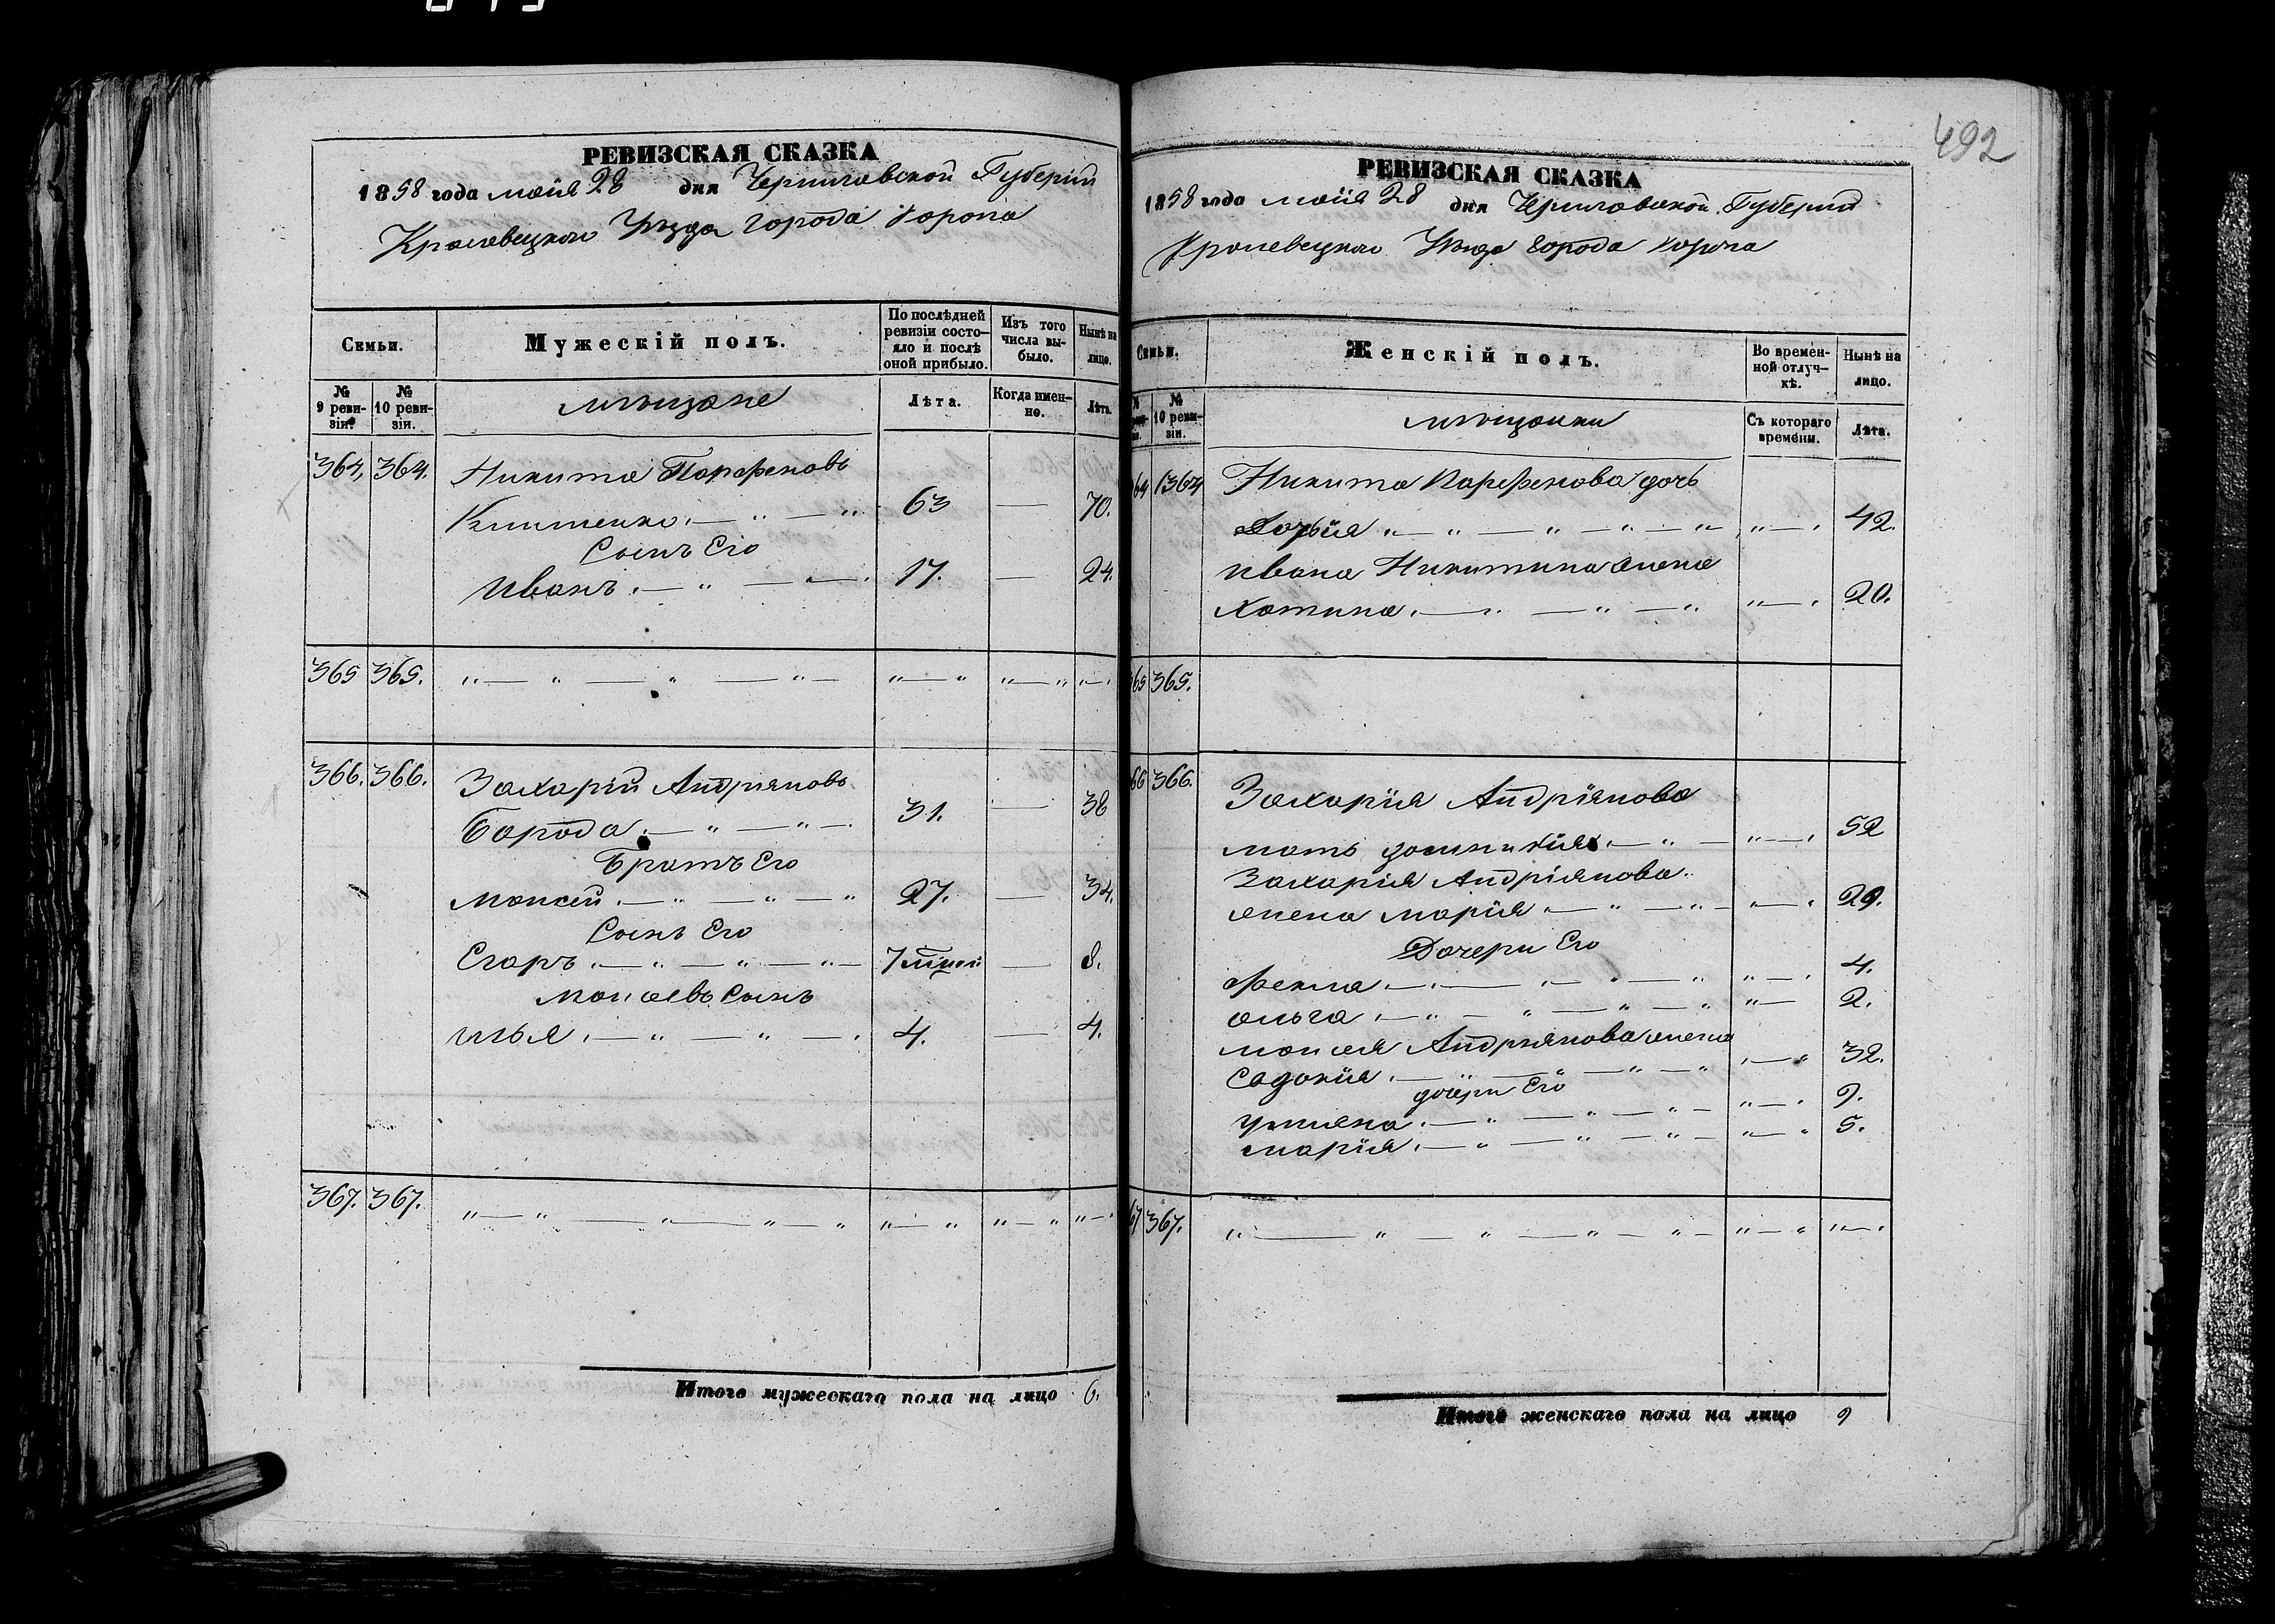 492
РЕВИЗСКАЯ СКАЗКА
1858 года маія 28 дня Черниговской Губерніи
Кролевецкого Уѣзда города Коропа
Семьи.
Мужескій полъ.
По послѣдней ревизіи состояло и послѣ оной прибыло.
Изъ того числа выбыло.
Нынѣ на лицо.
№ 9 ревизіи.
№ 10 ревизіи.
мѣщане
Лѣта.
Когда именно.
Лѣта.
364. 364. Никита Парфеновъ
63 — 70.
Сынъ Его
Иванъ 17. — 24.
365 365.
366. 366. Захарій Андріяновъ
Борода 31. — 38
Братъ Его
Моисей 27. — 34.
Сынъ Его
Егоръ 8.
Моисеевъ Сынъ
Илья 4. — 4.
367. 367.
Итого мужескаго пола на лицо 6.
РЕВИЗСКАЯ СКАЗКА
1858 года маія 28 дня Черниговской Губерніи
Кролевецкого Уѣзда города Коропа
Семьи.
Женскій полъ.
Во временной отлучкѣ.
Нынѣ на лицо.
№ 10 ревизіи.
мѣщанки
Съ котораго времени.
Лѣта.
64 364 Никита Парфенова дочь
42.
Ивана Никитина жена
20.
365 365.
66 366. Захарія Андріянова
мать 52
Захарія Андріянова
жена Марія 29.
Дочери Его
Фекла 4.
Ольга 2.
Моисея Андріянова жена
32.
дочери Его
Ульяна 9.
Марія 5.
67 367.
Итого женскаго пола на лицо 9